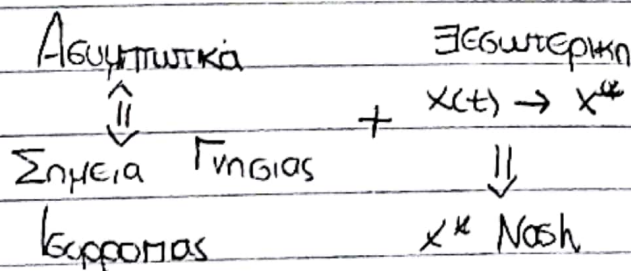 Ασυμπτωτικά
⇕
Σημεία Γνησιας
Ισορροπιας
+
∃εσωτερικη
x(t) → x*
⇓
x* Nash